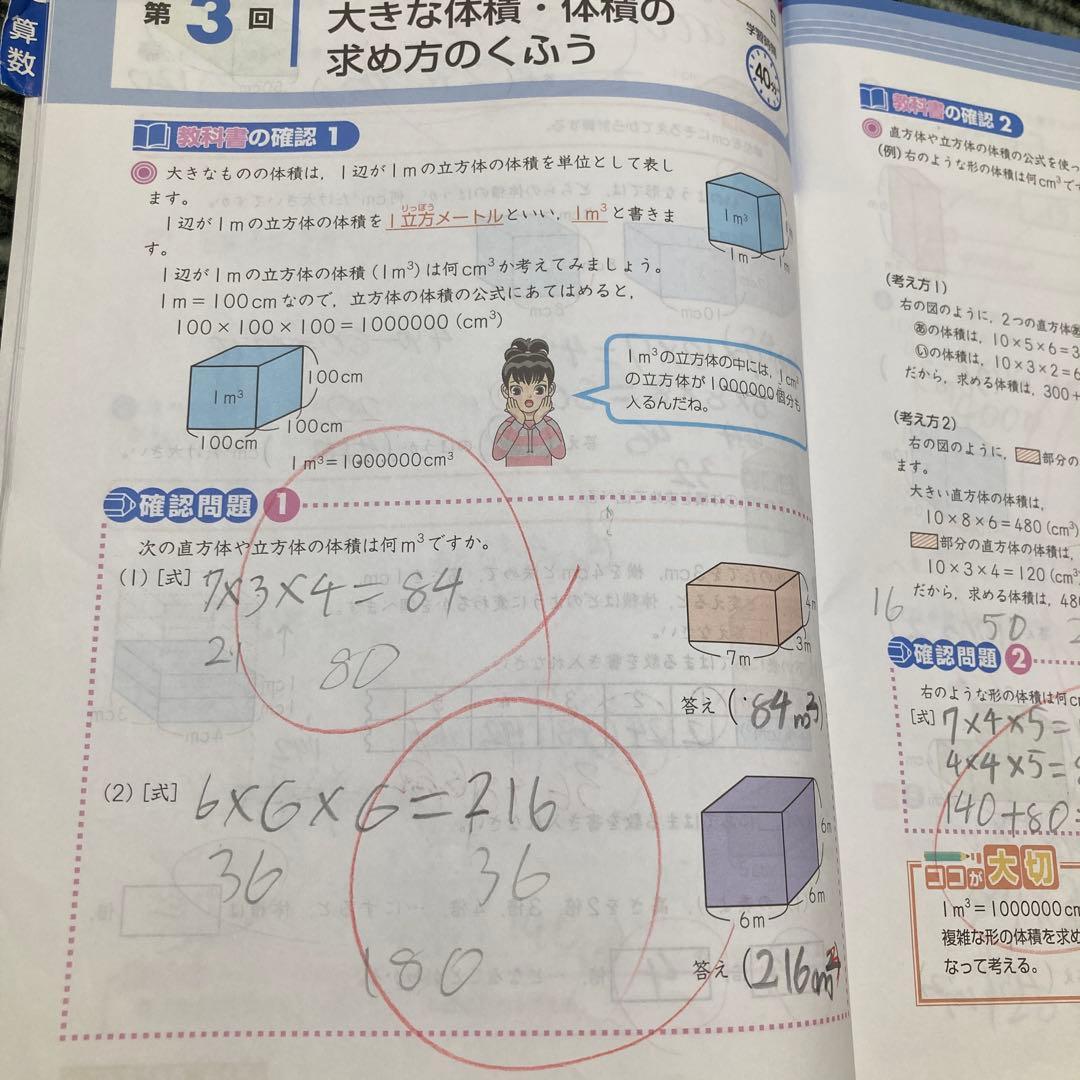 算数
第3回
大きな体積・体積の
求め方のくふう
学習時間
40分
教科書の確認 1
大きなものの体積は，1辺が1mの立方体の体積を単位として表し
ます。
りっぽう
1辺が1mの立方体の体積を1立方メートルといい，1m³と書きま
す。
1辺が1mの立方体の体積（1m³）は何cm³か考えてみましょう。
1m＝100cmなので，立方体の体積の公式にあてはめると，
100×100×100＝1000000（cm³）
1m³
1m
1m
1m³
100cm
100cm
100cm
1m³＝1000000cm³
1m³の立方体の中には，1cm³
の立方体が1000000個分も
入るんだね。
確認問題 1
次の直方体や立方体の体積は何m³ですか。
(1)［式］ 7×3×4=84
21 80
4m
3m
7m
答え（84m³）
(2)［式］ 6×6×6=216
36 36
180
6m
6m
6m
答え（216m³
教科書の確認 2
直方体や立方体の体積の公式を使っ
(例)右のような形の体積は何cm³で
(考え方1)
右の図のように，2つの直方体あ
あの体積は，10×5×6＝3
いの体積は，10×3×2＝6
だから，求める体積は，300＋
(考え方2)
右の図のように， 部分の
ます。
大きい直方体の体積は，
10×8×6＝480（cm³）
部分の直方体の体積は，
10×3×4＝120（cm³
だから，求める体積は，480
16 50 2
確認問題 2
右のような形の体積は何c
［式］ 7×4×5=
4×4×5=
140+80=
ココが大切
1m³＝1000000cm
複雑な形の体積を求め
なって考える。